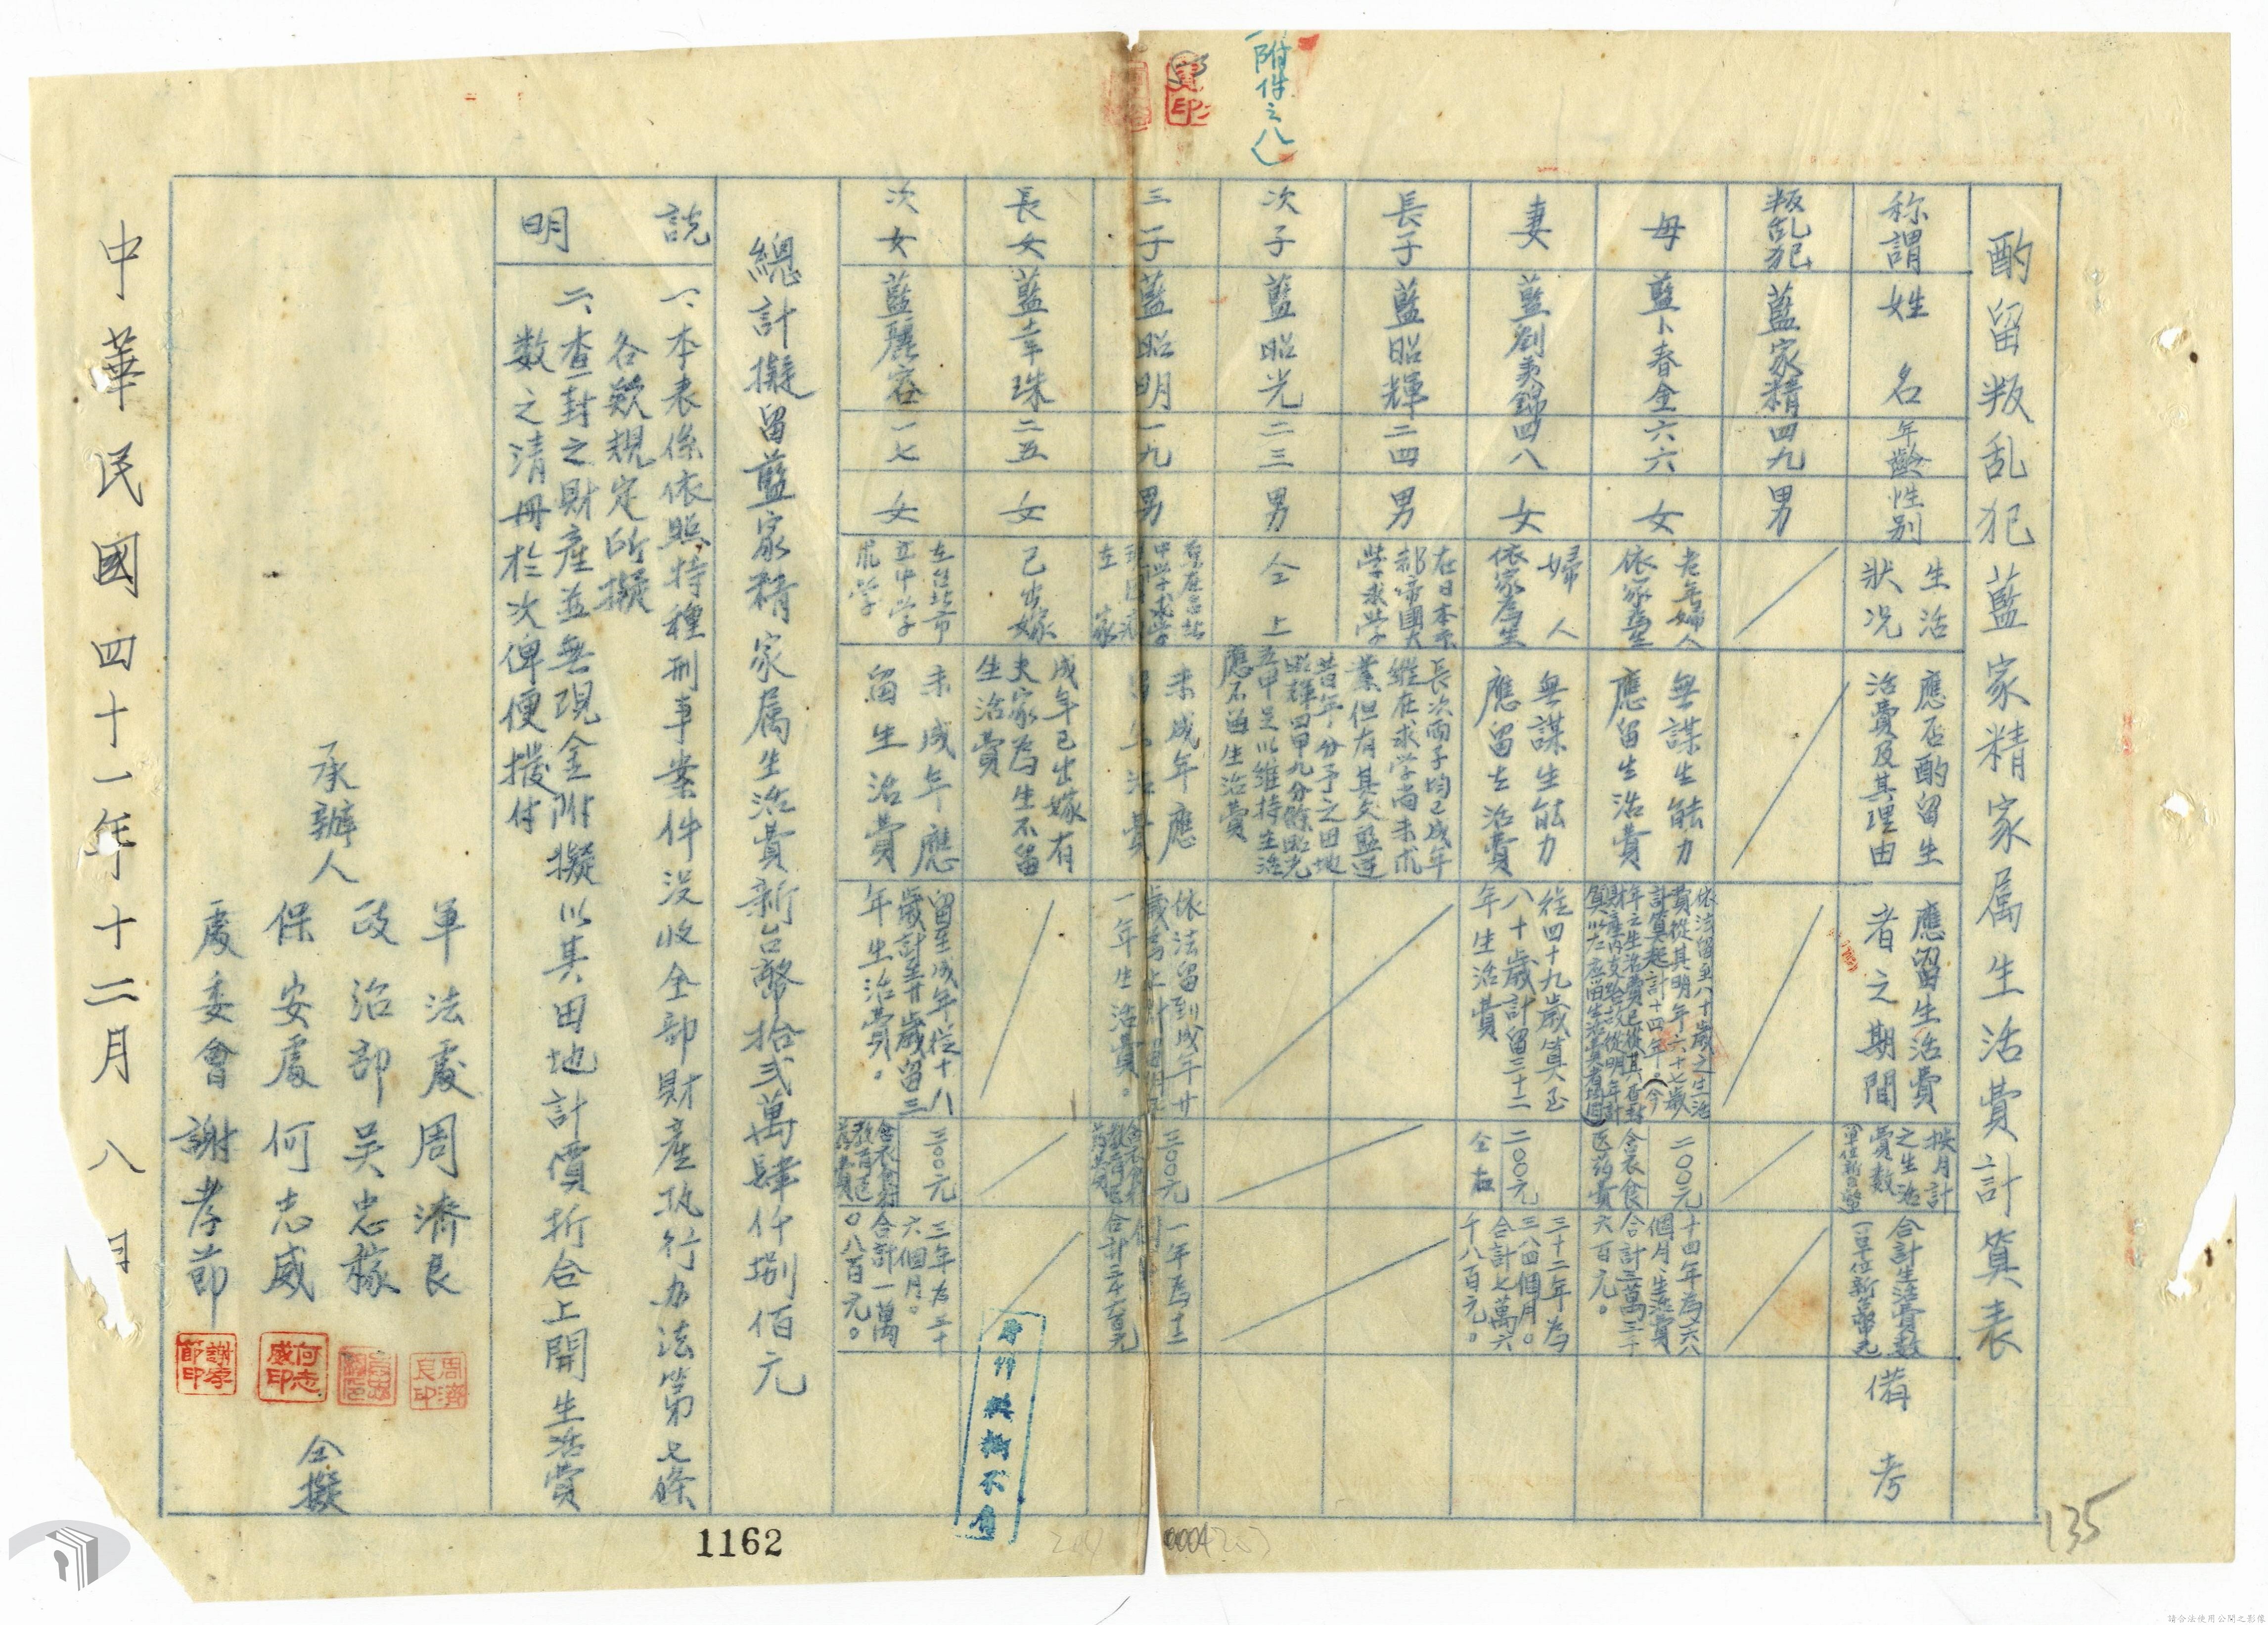 附件之八
酌留叛乱犯藍家精家属生活費計算表
称謂
姓名
年齡
性别
生活
狀况
應否酌留生
活費及其理由
應留生活費
者之期間
按月計
之生活
費數
合計生活費數
備考
叛乱犯
藍家精
四九
男
母
藍卜春金
六六
女
老年婦人
依家為生
無謀生能力
應留生活費
依法留至八十歲之生活
費從其明年六十七歲
計算起計十四年。(今
二〇〇元
含衣食
医药費
十四年為六八
個月、生活費
合計三萬三千
六百元。
妻
藍劉美錦
四八
女
婦人
依家為生
無謀生能力
應留生活費
從四十九歲算至
八十歲計留三十二
年生活費
二〇〇元
仝右
三十二年為
三八四個月。
合計七萬六
千八百元。
長子
藍昭輝
二四
男
在日本京
都帝國大
學求學
長次両子均已成年
継在求学尚未成
業但有其父藍逆
昔年分予之田地
昭輝四甲九分餘昭光
五甲足以維持生活
應不留生活費
次子
藍昭光
二三
男
仝上
三子
藍昭明
一九
男
未成年應
依法留到成年廿
一年生活費。
三〇〇元
一年為十二
長女
藍幸珠
二五
女
已出嫁
成年已出嫁有
夫家為生不留
生活費
次女
藍麗容
一七
女
在台北市
立中学
求学
未成年應
留生活費
留至成年從十八
歲計至廿歲留三
年生活費。
三〇〇元
三年為三十
六個月。
合計一萬
〇八百元。
總計擬留藍家精家属生活費新台幣拾弍萬肆仟捌佰元
説明
一、本表係依照特種刑事案件没收全部財產执行办法第七條
各欵規定所擬
二、查封之財產並無現金附擬以其田地計價折合上開生活費
数之清冊於次俾便撥付
承辦人
軍法處周濟良
政治部吴忠稼
保安處何志威
處委會謝孝節
周濟良印
何志威印
謝孝節印
仝擬
中華民國四十一年十二月八日
1162
135
請合法使用公開之影像